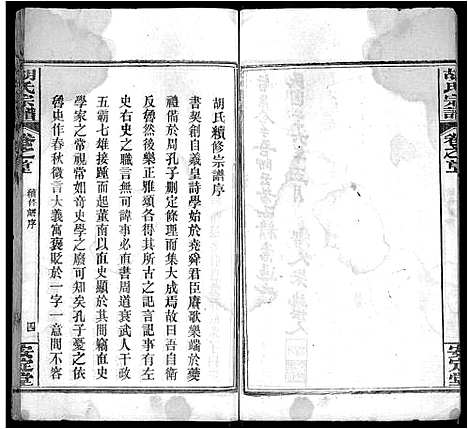 胡氏宗譜
卷之首
安定堂
胡氏續修宗譜序
書契創自羲皇詩學始於堯舜君臣賡歌樂端於夔
禮備於周孔子刪定條理而集大成焉故曰吾自衛
反魯然後樂正雅頌各得其所古之記言記事有左
史右史之職言無可諱事必直書周道衰武人干政
五霸七雄接踵而起董南以直史顯於其間竊直史
學家之常視當如奇史學之廢可知矣孔子憂之依
魯史作春秋微言大義寓褒貶於一字一意間不容
胡氏宗譜
卷之首
續修譜序
四
安定堂